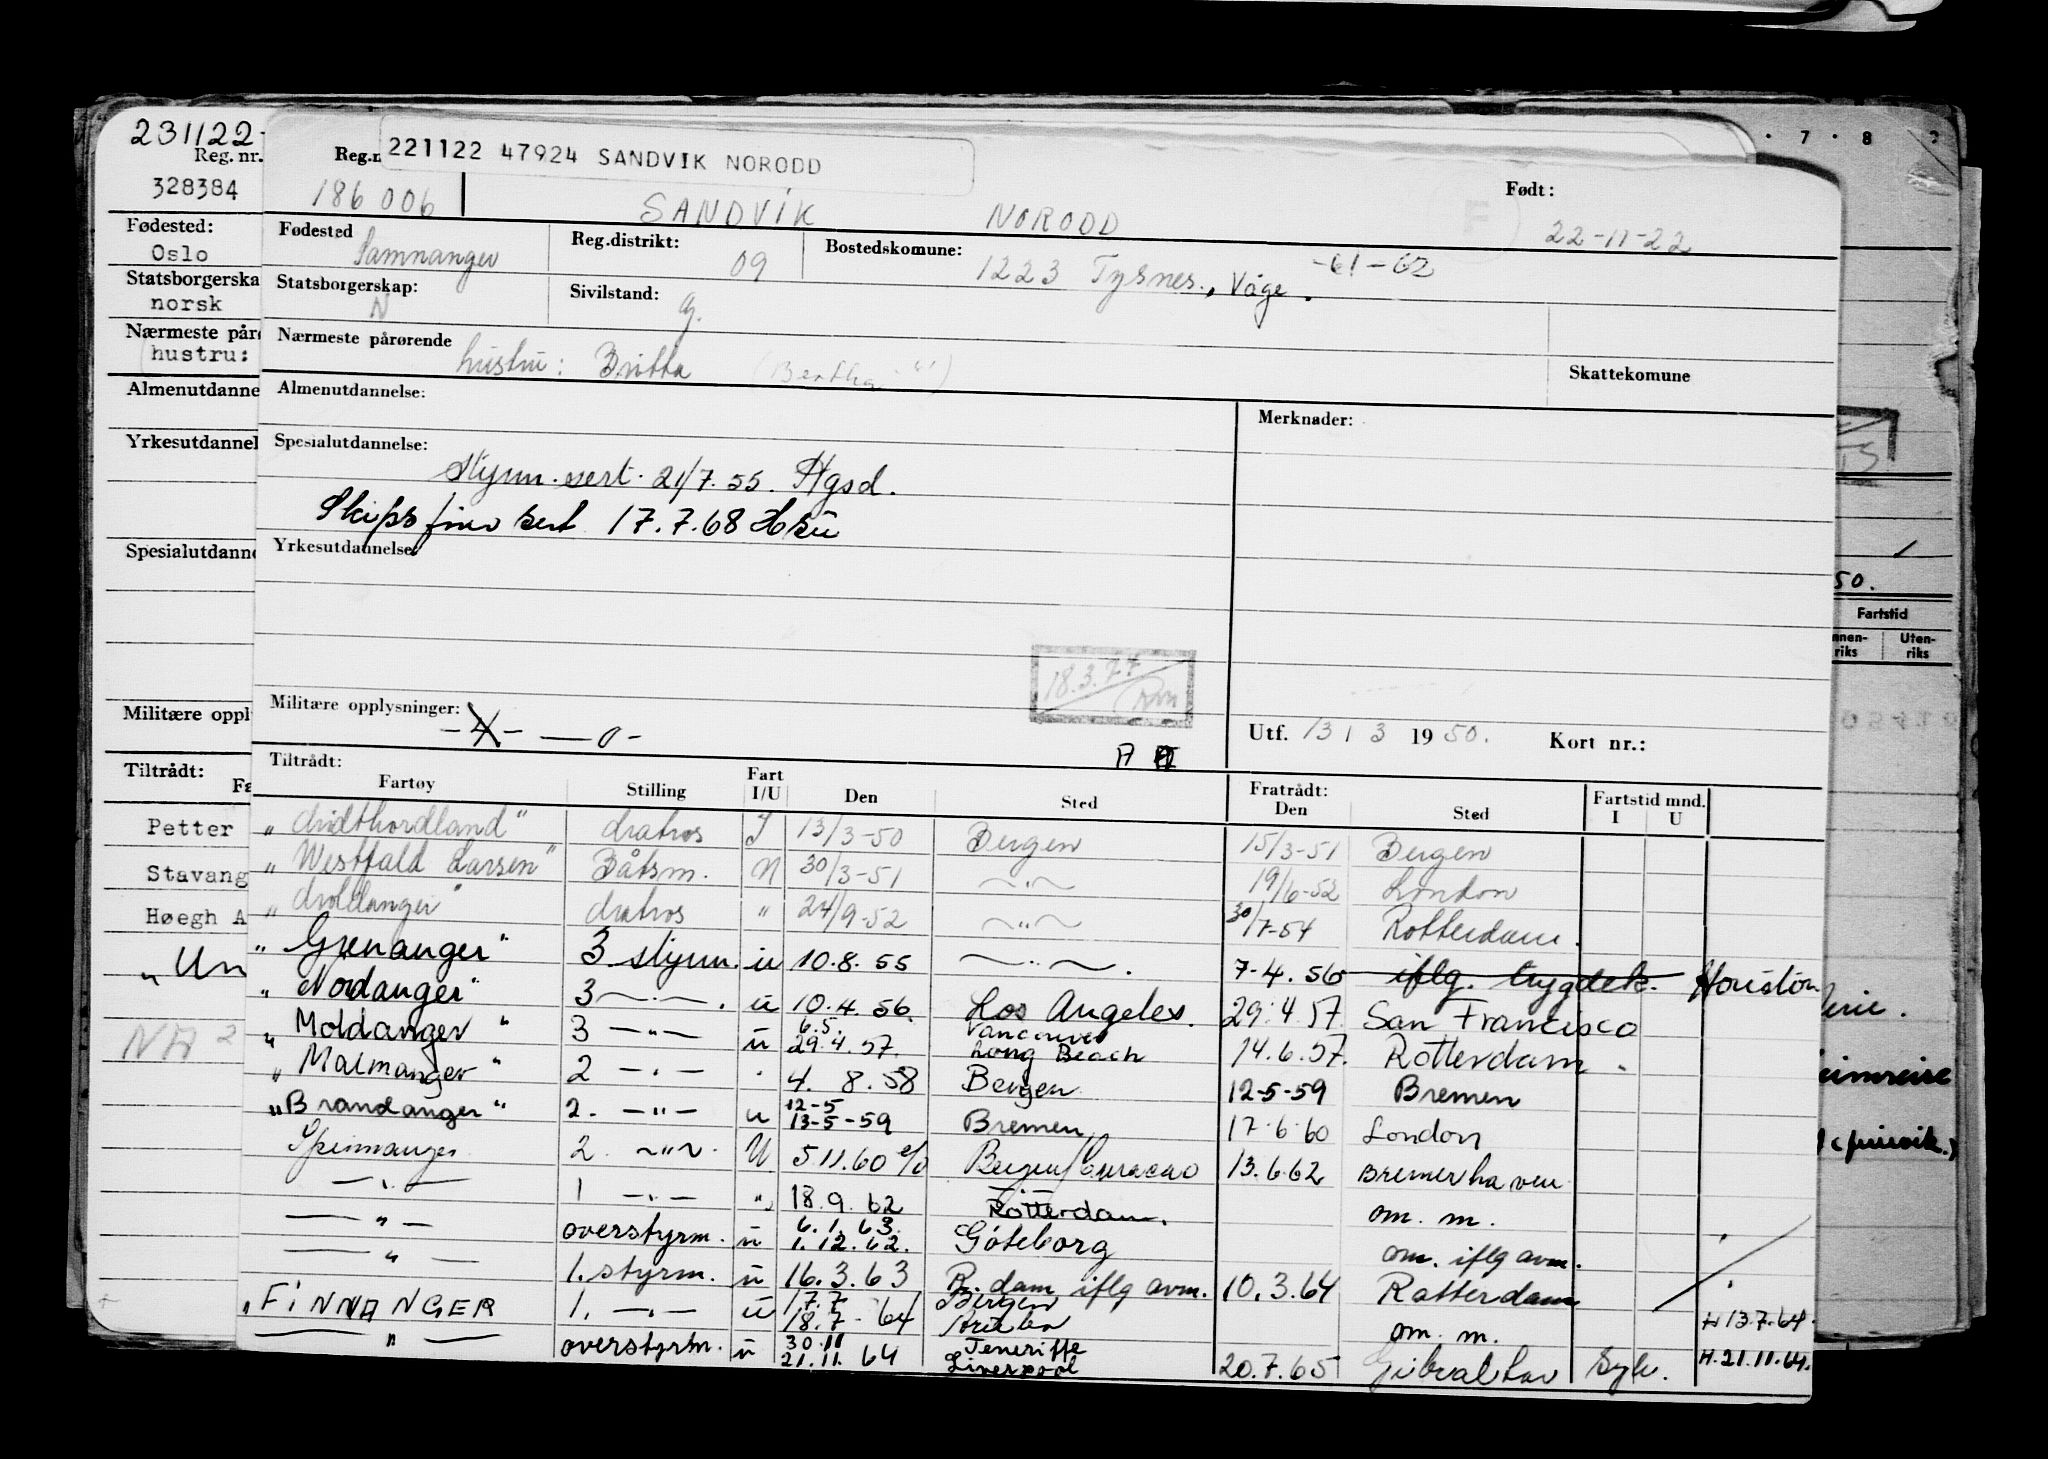 231122-
Reg. nr.
328384
Fødested:
Oslo
Statsborgerska
norsk
Nærmeste pårø
hustru:
Almenutdanne
Yrkesutdannel
Spesialutdanne
Militære oppl
Tiltrådt:
Fa
Petter
Stavang
Høegh A
„Un
221122 47924 SANDVIK NORODD
Reg.n
Født:
186 006 SANDVIK NORODD 22-11-22
Fødested Samnanger Reg.distrikt: 09 Bostedskommune: 1223 Tysnes., Våge. -61-62
Statsborgerskap: N Sivilstand: g.
Nærmeste pårørende hustru: Britta (Bertha "")
Skattekomune
Almenutdannelse:
Merknader:
Spesialutdannelse:
Styrm. sert. 21/7.55. Hgsd.
Skipsfører sert 17.7.68 Hsu
Yrkesutdannelse
18.3.77
Militære opplysninger: -4- —o-
Utf. 13 / 3 1950. Kort nr.:
Tiltrådt: Fratrådt:
Fartøy Stilling Fart I/U Den Sted Den Sted Fartstid mnd. I U
„Midthordland" Matros I 13/3-50 Bergen 15/3-51 Bergen
„Westfald Larsen" Båtsm. N 30/3-51 ~"~ 19/6-52 London
„Moldanger" Matros " 24/9-52 ~"~ 30/7-54 Rotterdam.
„Grenanger" 3 styrm. u 10.8.55 ~"~. 7-4.56 iflg. trygdek. Houston
„Nordanger" 3 —"—. u 10.4.56. Los Angeles. 29.4.57. San Francisco
„Moldanger" 3 —"— u 6.5. 29.4.57. Vancouver Long Beach 14.6.57. Rotterdam.
„Malmanger" 2 —"— " 4. 8.58 Bergen 12-5-59 Bremen
„Brandanger" 2. —"— u 12-5 13-5-59 Bremen 17.6.60 London
Speimanger 2. ~"~. U 5.11.60 Bergen/Curacao 13.6.62 Bremerhaven
—"— 1 —"— " 18.9.62 Rotterdam. om. m.
—"— overstyrm. u 6.1.63. 1.12.62. Göteborg om. iflg avm.
—"— 1. styrm. u 16.3.63 R.dam iflg avm. 10.3.64 Rotterdam
„FINNANGER 1. —"— u 17.7 18.7-64 Bergen om. m. H 13.7.64.
—"— overstyrm. u 30.11 21.11.64 Teneriffe Liverpool 20.7.65 Gibraltar Syk. H.21.11.64.
7 · 8
50.
Fartstid
nnen-riks Uten-riks